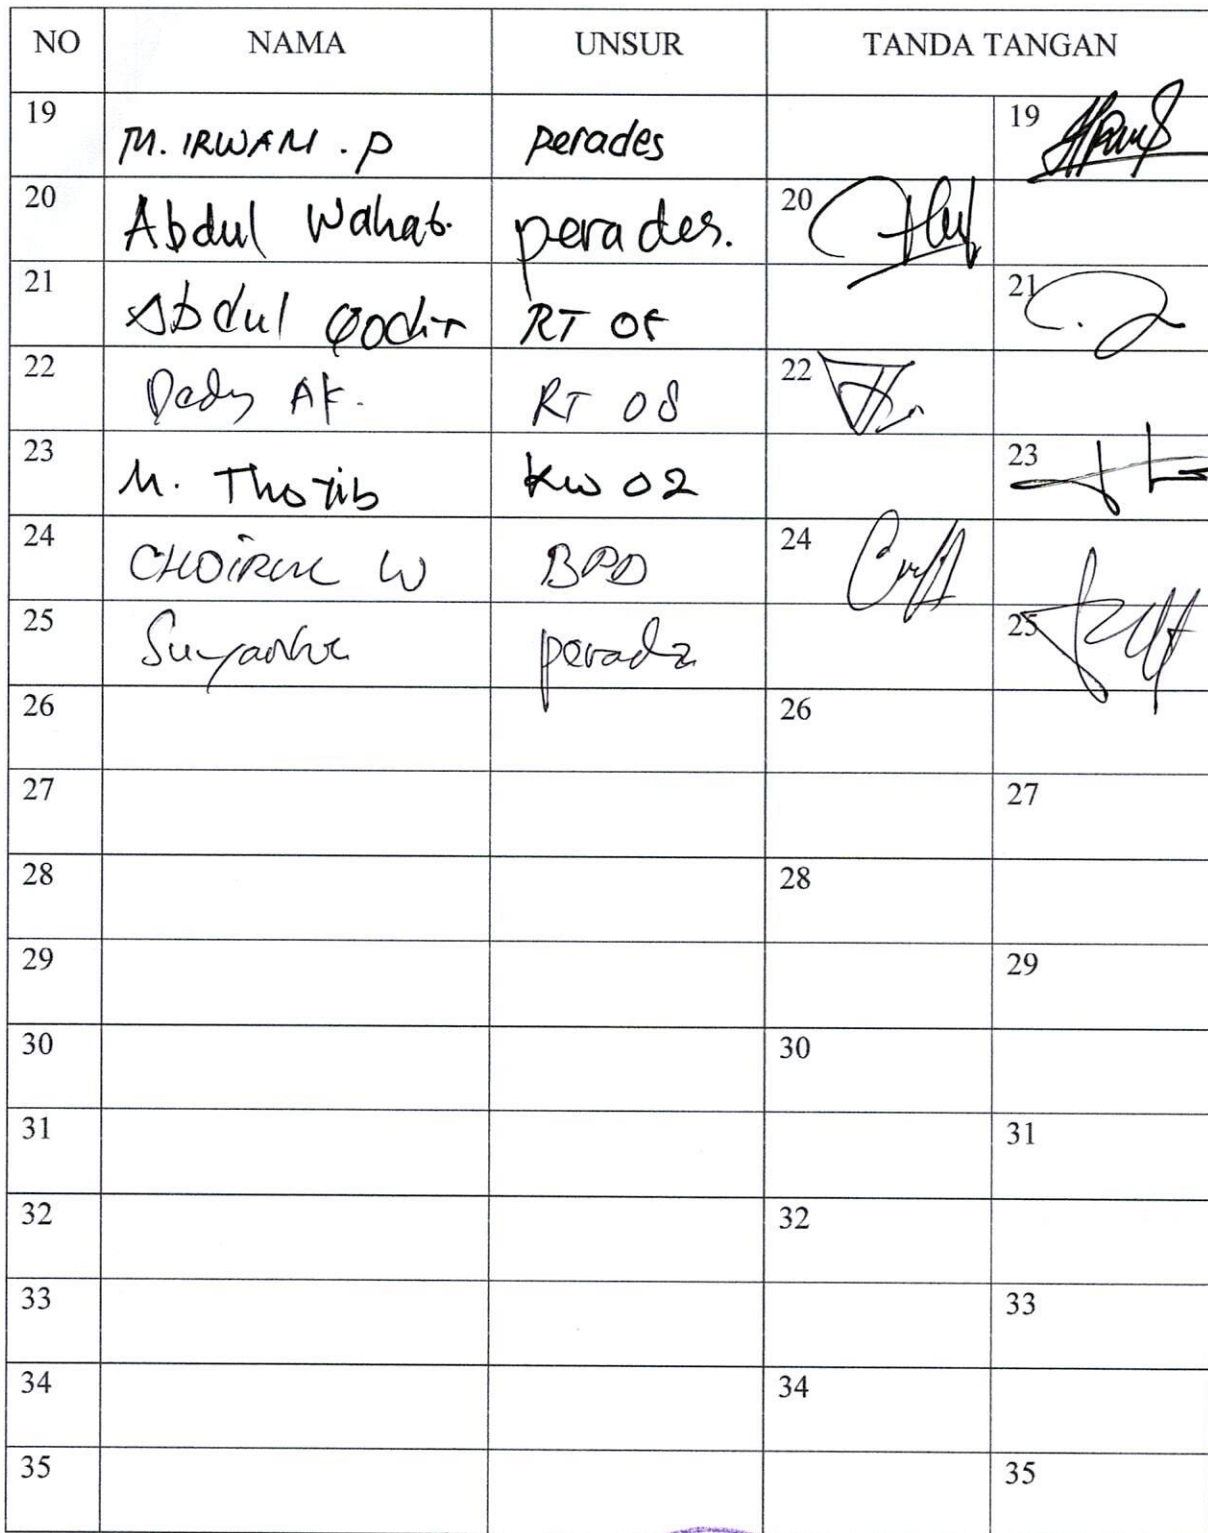 NO NAMA UNSUR TANDA TANGAN
19 M. IRWAN . P perades 19
20 Abdul Wahab. perades. 20
21 Abdul Qodir RT 21
22 Dedy AK. RT 08 22
23 M. Thotib Kw 02 23
24 CHOIRUL W BPD 24
25 25
26 26
27 27
28 28
29 29
30 30
31 31
32 32
33 33
34 34
35 35